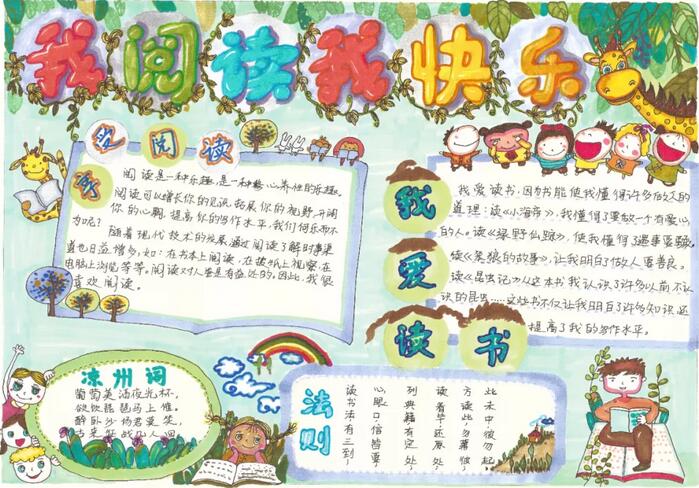 我阅读我快乐
享受阅读
阅读是一种乐趣,是一种养心养性的乐趣。
阅读可以增长你的见识,拓展你的视野,开阔
你的心胸,提高你的写作水平,我们何乐而不
为呢?
随着现代技术的发展,通过阅读了解时事渠
道也日益增多,如:在书本上阅读,在报纸上观察,在
电脑上浏览等等。阅读对人类是有益处的。因此,我很
喜欢阅读。
我爱读书
我爱读书,因为书能使我懂得许多做人的
道理:读《小海蒂》,我懂得了要做一个有爱心
的人。读《绿野仙踪》,使我懂得了遇事要勇敢。
读《笨狼的故事》,让我明白了做人要善良。
读《昆虫记》,从这本书我认识了许多以前不认
识的昆虫……这些书不仅让我明白了许多知识,还
提高了我的写作水平。
凉州词
葡萄美酒夜光杯,
欲饮琵琶马上催。
醉卧沙场君莫笑,
古来征战几人回
法则
读书法有三到,
心眼口信皆要,
列典籍有定处,
读看毕还原处,
方读此,勿慕彼,
此未中彼勿起,